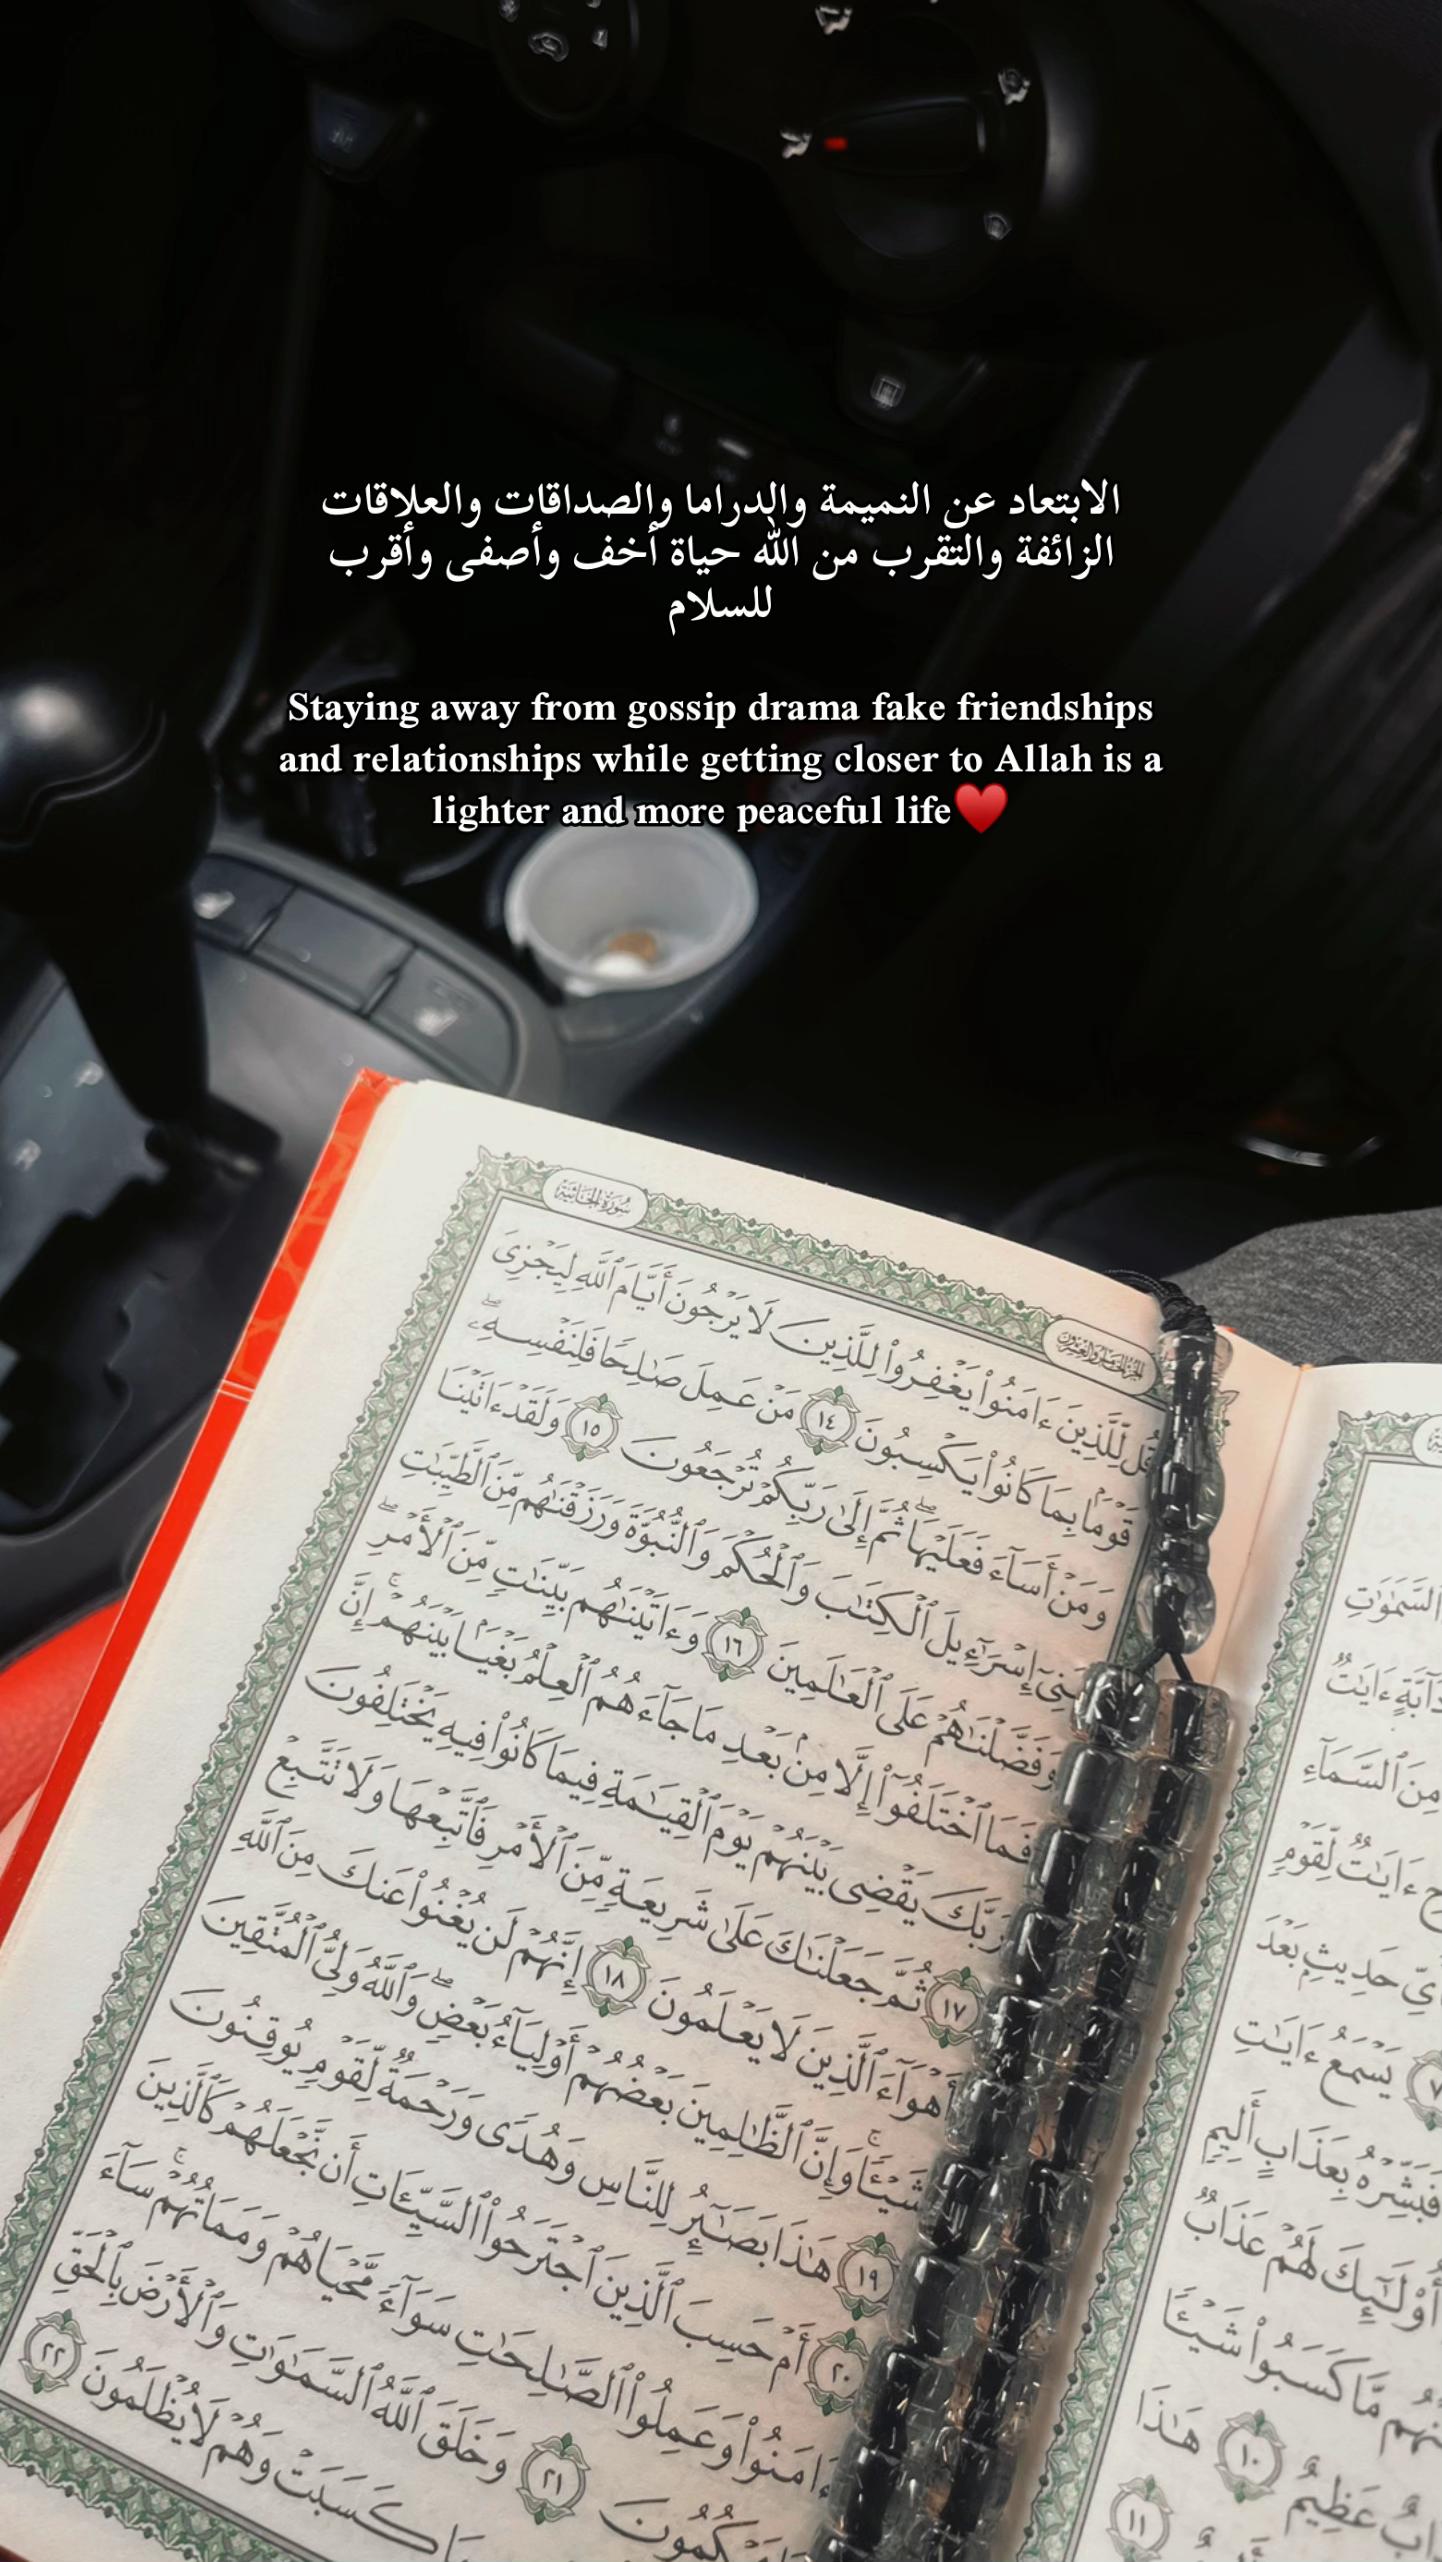 الابتعاد عن النميمة والدراما والصداقات والعلاقات
الزائفة والتقرب من الله حياة أخف وأصفى وأقرب
للسلام
Staying away from gossip drama fake friendships
and relationships while getting closer to Allah is a
lighter and more peaceful life♥️
سُورَةُ الجَاثِيَةِ
الجُزْءُ الخَامِسُ وَالعِشْرُونَ
قُل لِّلَّذِينَ ءَامَنُوا۟ يَغْفِرُوا۟ لِلَّذِينَ لَا يَرْجُونَ أَيَّامَ ٱللَّهِ لِيَجْزِىَ
قَوْمًۢا بِمَا كَانُوا۟ يَكْسِبُونَ ١٤ مَنْ عَمِلَ صَـٰلِحًا فَلِنَفْسِهِۦ ۖ
وَمَنْ أَسَآءَ فَعَلَيْهَا ۖ ثُمَّ إِلَىٰ رَبِّكُمْ تُرْجَعُونَ ١٥ وَلَقَدْ ءَاتَيْنَا
بَنِىٓ إِسْرَٰٓءِيلَ ٱلْكِتَـٰبَ وَٱلْحُكْمَ وَٱلنُّبُوَّةَ وَرَزَقْنَـٰهُم مِّنَ ٱلطَّيِّبَـٰتِ
وَفَضَّلْنَـٰهُمْ عَلَى ٱلْعَـٰلَمِينَ ١٦ وَءَاتَيْنَـٰهُم بَيِّنَـٰتٍ مِّنَ ٱلْأَمْرِ ۖ
فَمَا ٱخْتَلَفُوٓا۟ إِلَّا مِنۢ بَعْدِ مَا جَآءَهُمُ ٱلْعِلْمُ بَغْيًۢا بَيْنَهُمْ ۚ إِنَّ
رَبَّكَ يَقْضِى بَيْنَهُمْ يَوْمَ ٱلْقِيَـٰمَةِ فِيمَا كَانُوا۟ فِيهِ يَخْتَلِفُونَ
١٧ ثُمَّ جَعَلْنَـٰكَ عَلَىٰ شَرِيعَةٍ مِّنَ ٱلْأَمْرِ فَٱتَّبِعْهَا وَلَا تَتَّبِعْ
أَهْوَآءَ ٱلَّذِينَ لَا يَعْلَمُونَ ١٨ إِنَّهُمْ لَن يُغْنُوا۟ عَنكَ مِنَ ٱللَّهِ
شَيْـًٔا ۚ وَإِنَّ ٱلظَّـٰلِمِينَ بَعْضُهُمْ أَوْلِيَآءُ بَعْضٍ ۖ وَٱللَّهُ وَلِىُّ ٱلْمُتَّقِينَ
١٩ هَـٰذَا بَصَـٰٓئِرُ لِلنَّاسِ وَهُدًى وَرَحْمَةٌ لِّقَوْمٍ يُوقِنُونَ
٢٠ أَمْ حَسِبَ ٱلَّذِينَ ٱجْتَرَحُوا۟ ٱلسَّيِّـَٔاتِ أَن نَّجْعَلَهُمْ كَٱلَّذِينَ
ءَامَنُوا۟ وَعَمِلُوا۟ ٱلصَّـٰلِحَـٰتِ سَوَآءً مَّحْيَاهُمْ وَمَمَاتُهُمْ ۚ سَآءَ
٢١ وَخَلَقَ ٱللَّهُ ٱلسَّمَـٰوَٰتِ وَٱلْأَرْضَ بِٱلْحَقِّ
كَسَبَتْ وَهُمْ لَا يُظْلَمُونَ ٢٢
ٱلسَّمَـٰوَٰتِ
دَآبَّةٍ ءَايَـٰتٌ
مِنَ ٱلسَّمَآءِ
ءَايَـٰتٌ لِّقَوْمٍ
حَدِيثٍۭ بَعْدَ
٧ يَسْمَعُ ءَايَـٰتِ
فَبَشِّرْهُ بِعَذَابٍ أَلِيمٍ
أُو۟لَـٰٓئِكَ لَهُمْ عَذَابٌ
مَّا كَسَبُوا۟ شَيْـًٔا
عَظِيمٌ ١٠ هَـٰذَا
١١